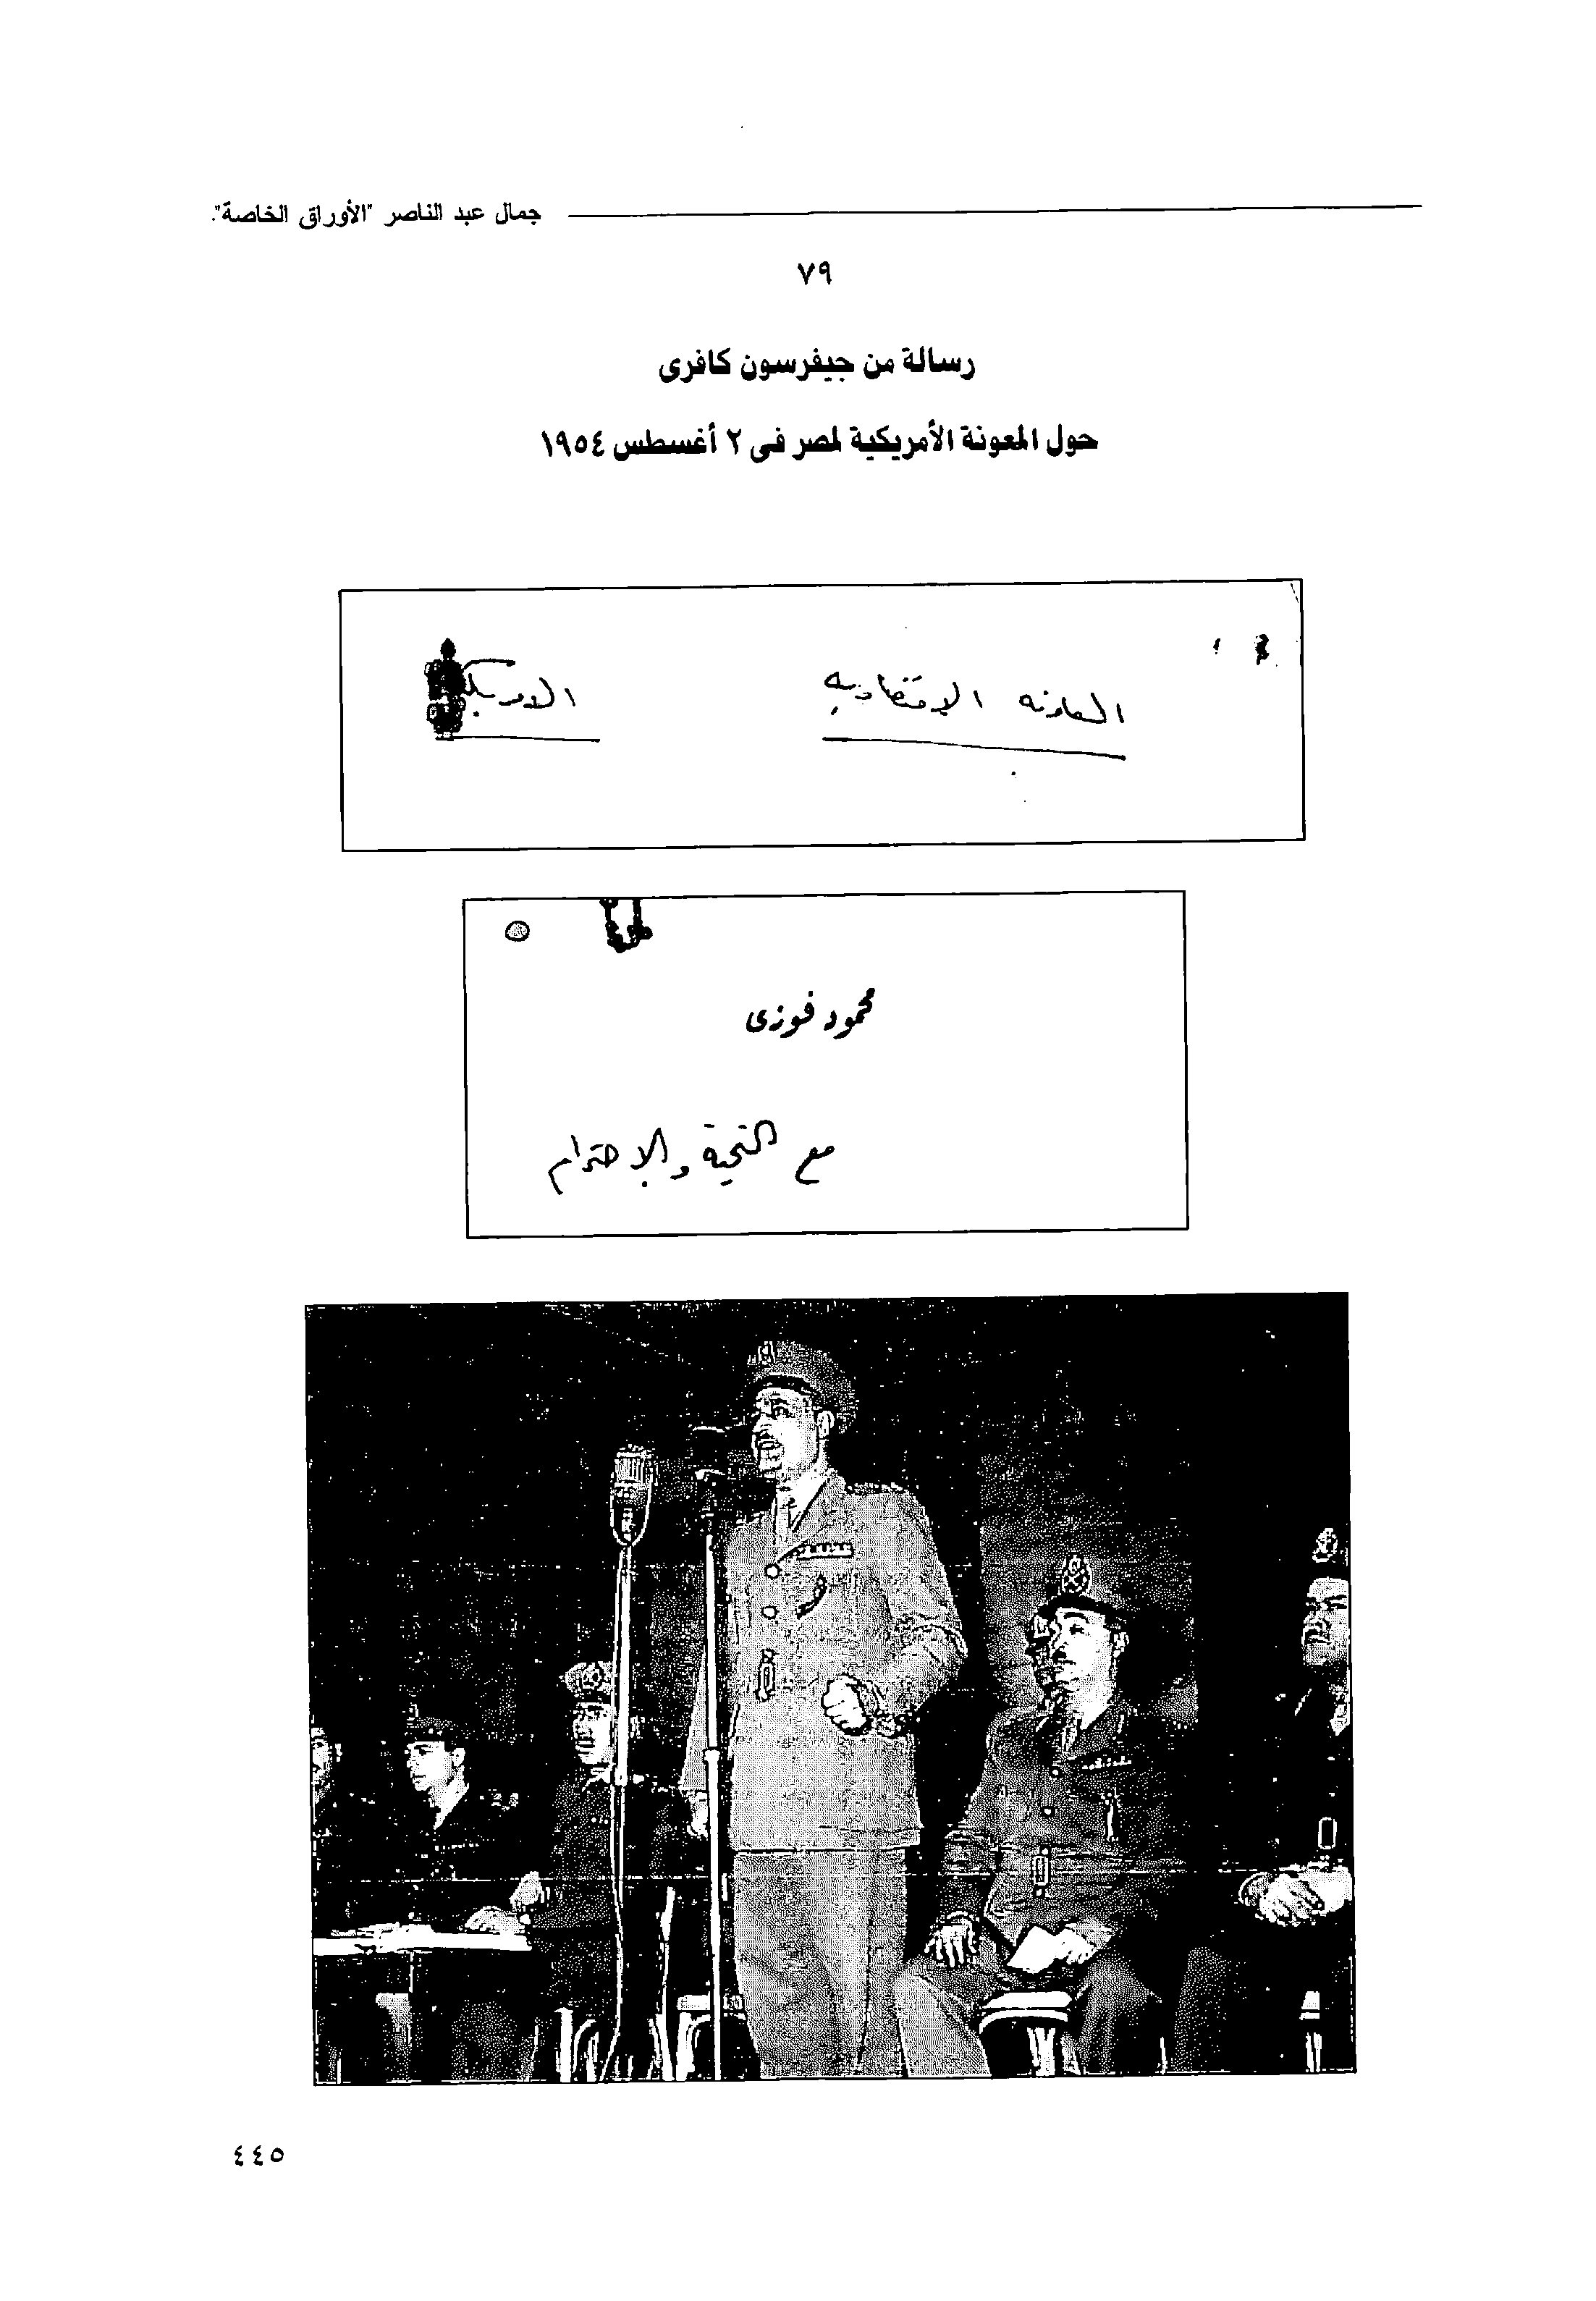 جمال عبد الناصر "الأوراق الخاصة".
٧٩
رسالة من جيفرسون كافرى
حول المعونة الأمريكية لمصر فى ٢ أغسطس ١٩٥٤
المعاونه الاقتصاديه
محمود فوزى
مع التحية والاحترام
٤٤٥